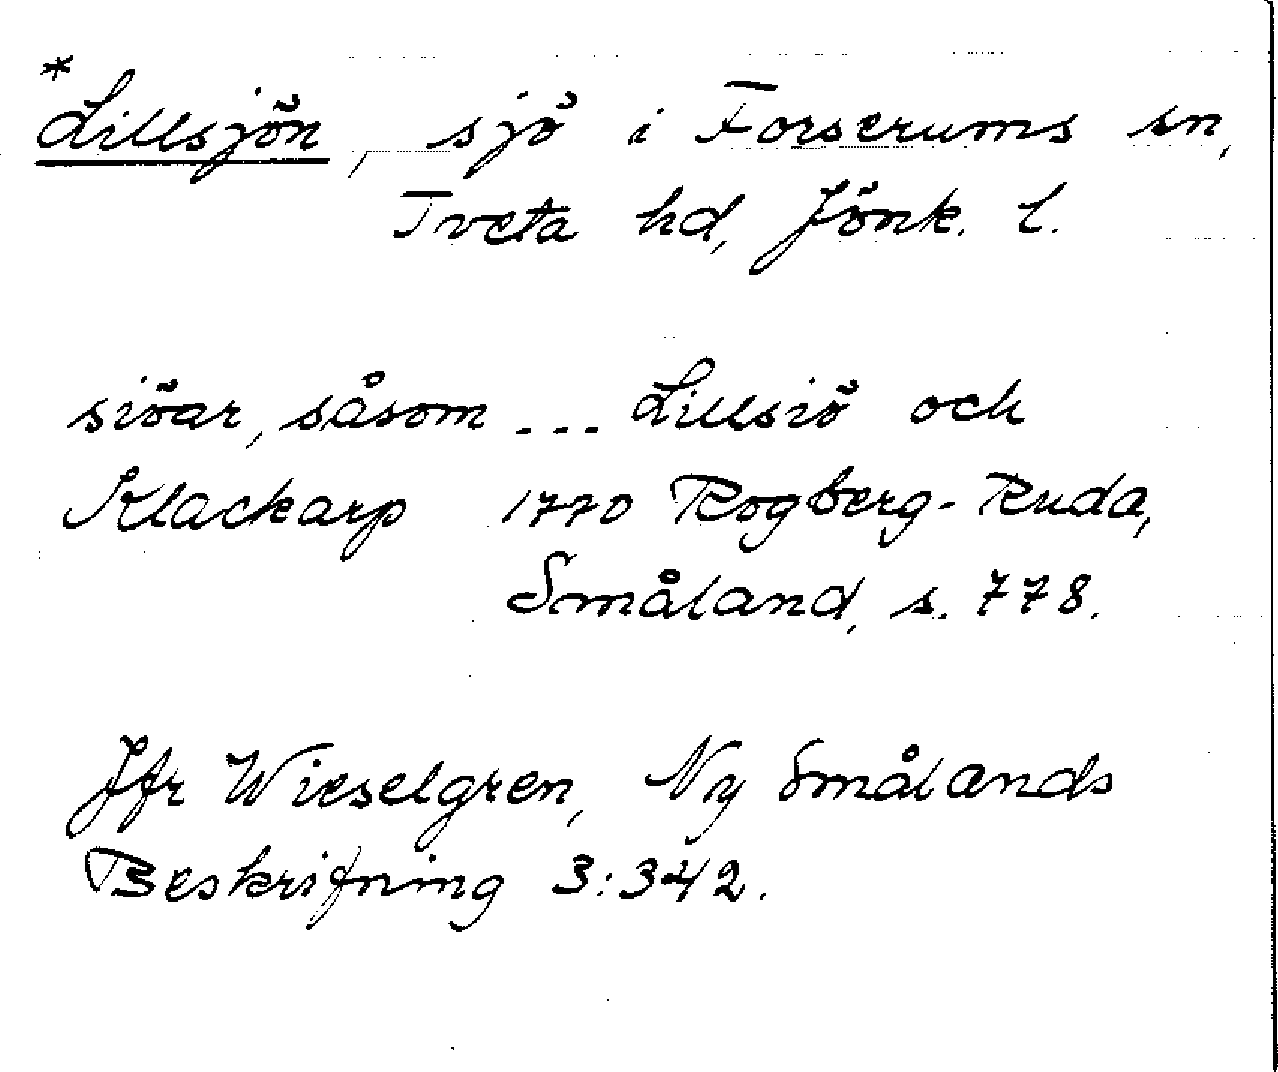 *
Lillsjön, sjö i Forserums sn,
Tveta hd, Jönk. l.
siöar, såsom ... Lillsiö och
Klackarp 1770 Rogberg-Ruda,
Småland, s. 778.
Jfr Wieselgren, Ny Smålands
Beskrifning 3:342.